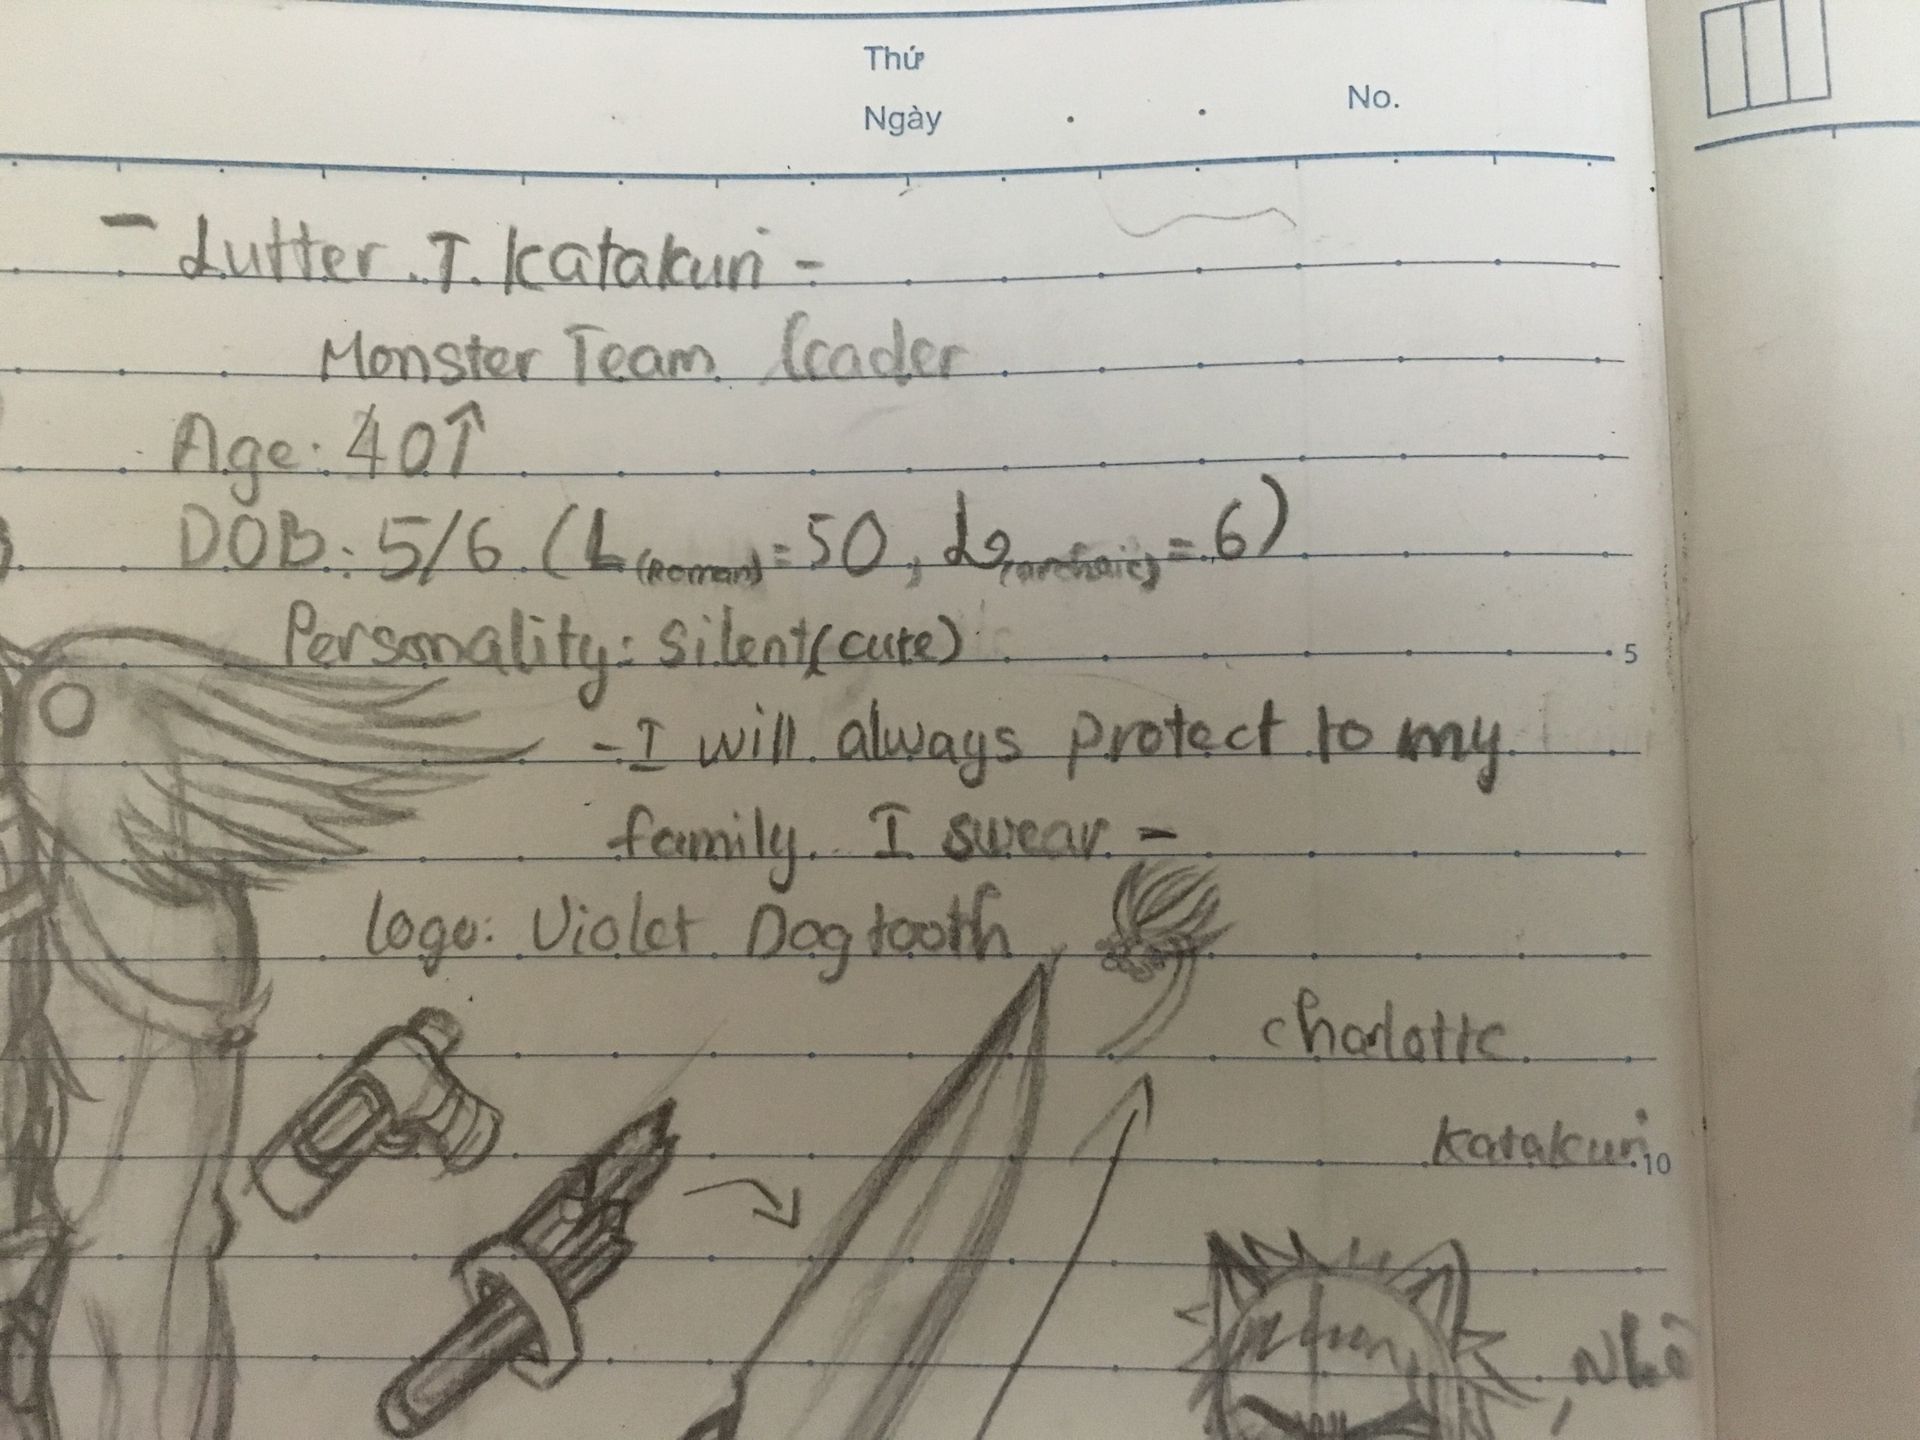 Thứ
Ngày
No.
- Lutter .T. Katakuri -
Monster Team Leader
Age: 40↑
DOB: 5/6 (L (Roman) = 50, L2 (archaic) = 6)
Personality: Silent (cute)
5
- I will always protect to my
family. I swear -
Logo: Violet Dogtooth
Charlotte
Katakuri
10